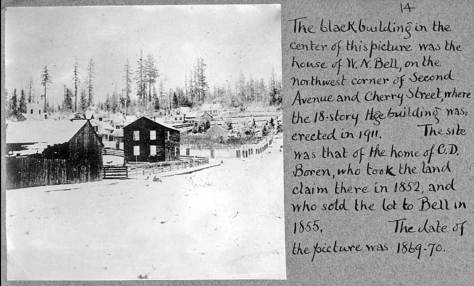 14
The black building in the
center of this picture was the
house of W. N. Bell, on the
northwest corner of Second
Avenue and Cherry Street, where
the 18-story Hoge building was
erected in 1911. The site
was that of the home of C. D.
Boren, who took the land
claim there in 1852, and
who sold the lot to Bell in
1855. The date of
the picture was 1869-70.